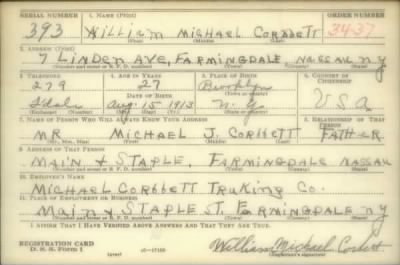 SERIAL NUMBER 1. NAME (Print) ORDER NUMBER
393 William Michael Corbbett 3437
(First) (Middle) (Last)
2. ADDRESS (Print)
7 Linden Ave, Farmingdale Nassau N.Y
(Number and street or R. F. D. number) (Town) (County) (State)
3. TELEPHONE 4. AGE IN YEARS 5. PLACE OF BIRTH 6. COUNTRY OF CITIZENSHIP
279 27 Brooklyn
DATE OF BIRTH
Aug. 15 1913 N. Y. U.S.A
(Exchange) (Number) (Mo.) (Day) (Yr.) (State or country)
7. NAME OF PERSON WHO WILL ALWAYS KNOW YOUR ADDRESS 8. RELATIONSHIP OF THAT PERSON
MR Michael J. Corbbett FATHER
(Mr., Mrs., Miss) (First) (Middle) (Last)
9. ADDRESS OF THAT PERSON
MAIN & STAPLE, FARMINGDALE NASSAU
(Number and street or R. F. D. number) (Town) (County) (State)
10. EMPLOYER'S NAME
Michael Corbbett Truking Co.
11. PLACE OF EMPLOYMENT OR BUSINESS
Main & STAPLE ST. Farmingdale N y
(Number and street or R. F. D. number) (Town) (County) (State)
I AFFIRM THAT I HAVE VERIFIED ABOVE ANSWERS AND THAT THEY ARE TRUE.
REGISTRATION CARD
D. S. S. Form 1 16-17105 William Michael Corbett
(over) (Registrant's signature)